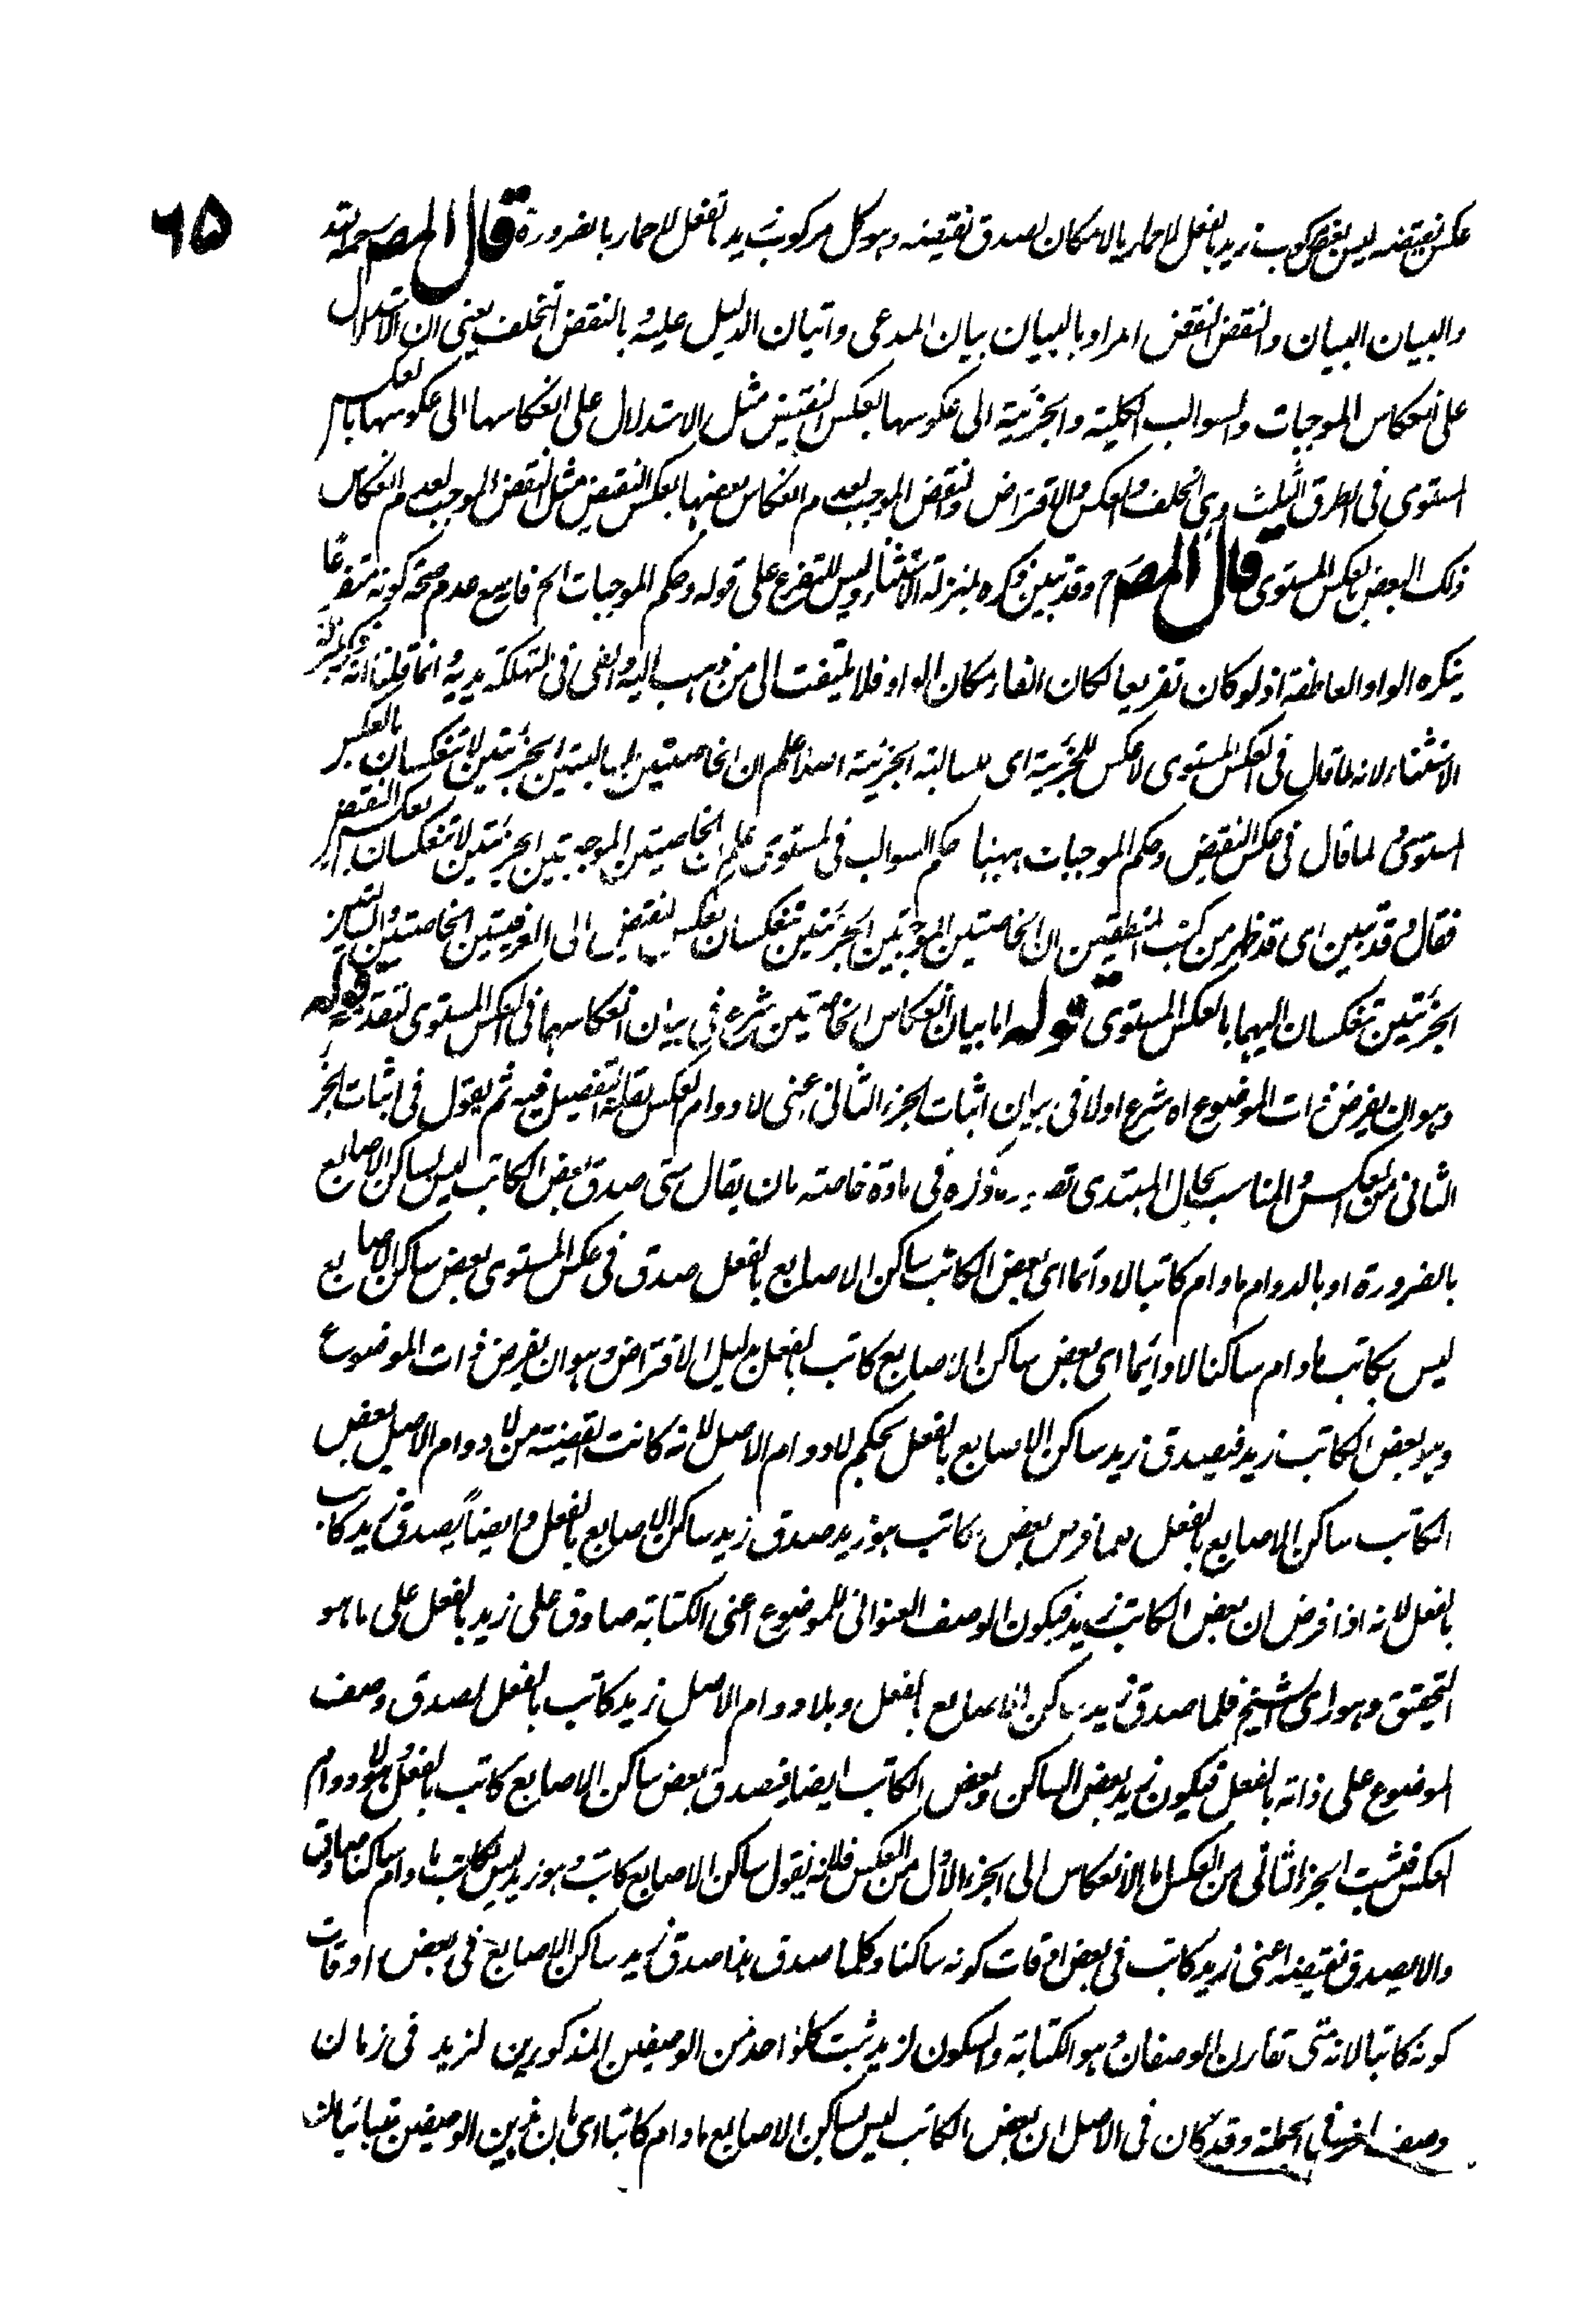 ٦٥
عكس نقيضه ليس بعض مركوب زيد بالفعل للاحمار بالامكان لصدق نقيضه وهو كل مركوب زيد بالفعل للاحمار بالضرورة قال المصـ رحمه الله
والبيان البيان والنقض النقض المراد بالبيان بيان المدعى واتيان الدليل عليه وبالنقض التخلف يعنى ان الاستدلال
على انعكاس الموجبات والسوالب الكلية والجزئية الى عكوسها بعكس النقيض مثل الاستدلال على انعكاسها الى عكوسها بالعكس
المستوى فى الطرق الثلث وهى الخلف والعكس والافتراض والنقض الموجب لعدم انعكاس بعضها بعكس النقيض مثل النقض الموجب لعدم انعكاس
ذلك البعض بالعكس المستوى قال المصـ رح وقد تبين ذكره بمنزلة الاستثناء وليس للتفرع على قوله وحكم الموجبات الخ فاسمع عدم صحة كونه متفرعا
بذكره الواو العاطفة اذ لو كان تفريعا لكان الفاء مكان الواو فلا يلتفت الى من ذهب اليه والقى فى التهلكة يديه وانما قلنا انه ذكر بمنزلة
الاستثناء لانه لما قال فى العكس المستوى لا عكس للجزئية اى للسالبة الجزئية اصلا علم ان الخاصتين السالبتين الجزئيتين لا تنعكسان بالعكس
المستوى ولما قال فى عكس النقيض وحكم الموجبات ههنا حكم السوالب فى المستوى علم ان الخاصيتين الموجبتين الجزئيتين لا تنعكسان بعكس النقيض
فقال وقد تبين اى قد ظهر من كتب المنطقيين ان الخاصتين الموجبتين الجزئيتين تنعكسان بعكس النقيض الى العرفيتين الخاصتين والسالبتين
الجزئيتين تنعكسان اليهما بالعكس المستوى قوله اما بيان انعكاس الخاصتين شرع فى بيان انعكاسهما فى العكس المستوى لتقدمه قوله
وهو ان يفرض ذات الموضوع اه شرع اولا فى بيان اثبات الجزء الثانى اعنى لا دوام العكس لقلة التفصيل فيه ثم يقول فى اثبات الجزء
الثانى من العكس والمناسب بحال المبتدى تصوير ما ذكره فى مادة خاصة بان يقال متى صدق بعض الكاتب ليس بساكن الاصابع
بالضرورة او بالدوام ما دام كاتبا لا دائما اى بعض الكاتب ساكن الاصابع بالفعل صدق فى عكس المستوى بعض ساكن الاصابع
ليس بكاتب ما دام ساكنا لا دائما اى بعض ساكن الاصابع كاتب بالفعل بدليل الافتراض وهو ان يفرض ذات الموضوع
وهو بعض الكاتب زيد فيصدق زيد ساكن الاصابع بالفعل بحكم لا دوام الاصل لانه كانت القضية من لا دوام الاصل بعض
الكاتب ساكن الاصابع بالفعل فلما فرض بعض كاتب هو زيد صدق زيد ساكن الاصابع بالفعل وايضاً يصدق زيد كاتب
بالفعل لانه اذا فرض ان بعض الكاتب زيد فيكون الوصف العنوانى للموضوع اعنى الكتابة صادق على زيد بالفعل على ما هو
التحقيق وهو راى الشيخ فلما صدق زيد ساكن الاصابع بالفعل وبلا دوام الاصل زيد كاتب بالفعل لصدق وصف
الموضوع على ذاته بالفعل فيكون زيد بعض الساكن وبعض الكاتب ايضا فيصدق بعض ساكن الاصابع كاتب بالفعل وهو لا دوام
العكس فثبت الجزء الثانى من العكس اما الانعكاس الى الجزء الاول من العكس فلانه نقول ساكن الاصابع كاتب وهو زيد ليس بكاتب ما دام ساكنا صادق
والا لصدق نقيضه اعنى زيد كاتب فى بعض اوقات كونه ساكنا وكلما صدق هذا صدق زيد ساكن الاصابع فى بعض اوقات
كونه كاتبا لانه متى تقارن الوصفان وهو الكتابة والسكون لزيد ثبت كل واحد من الوصفين المذكورين لزيد فى زمان
وصف اخر فى الجملة وقد كان فى الاصل ان بعض الكاتب ليس بساكن الاصابع ما دام كاتبا اى بان هذين الوصفين متباينان